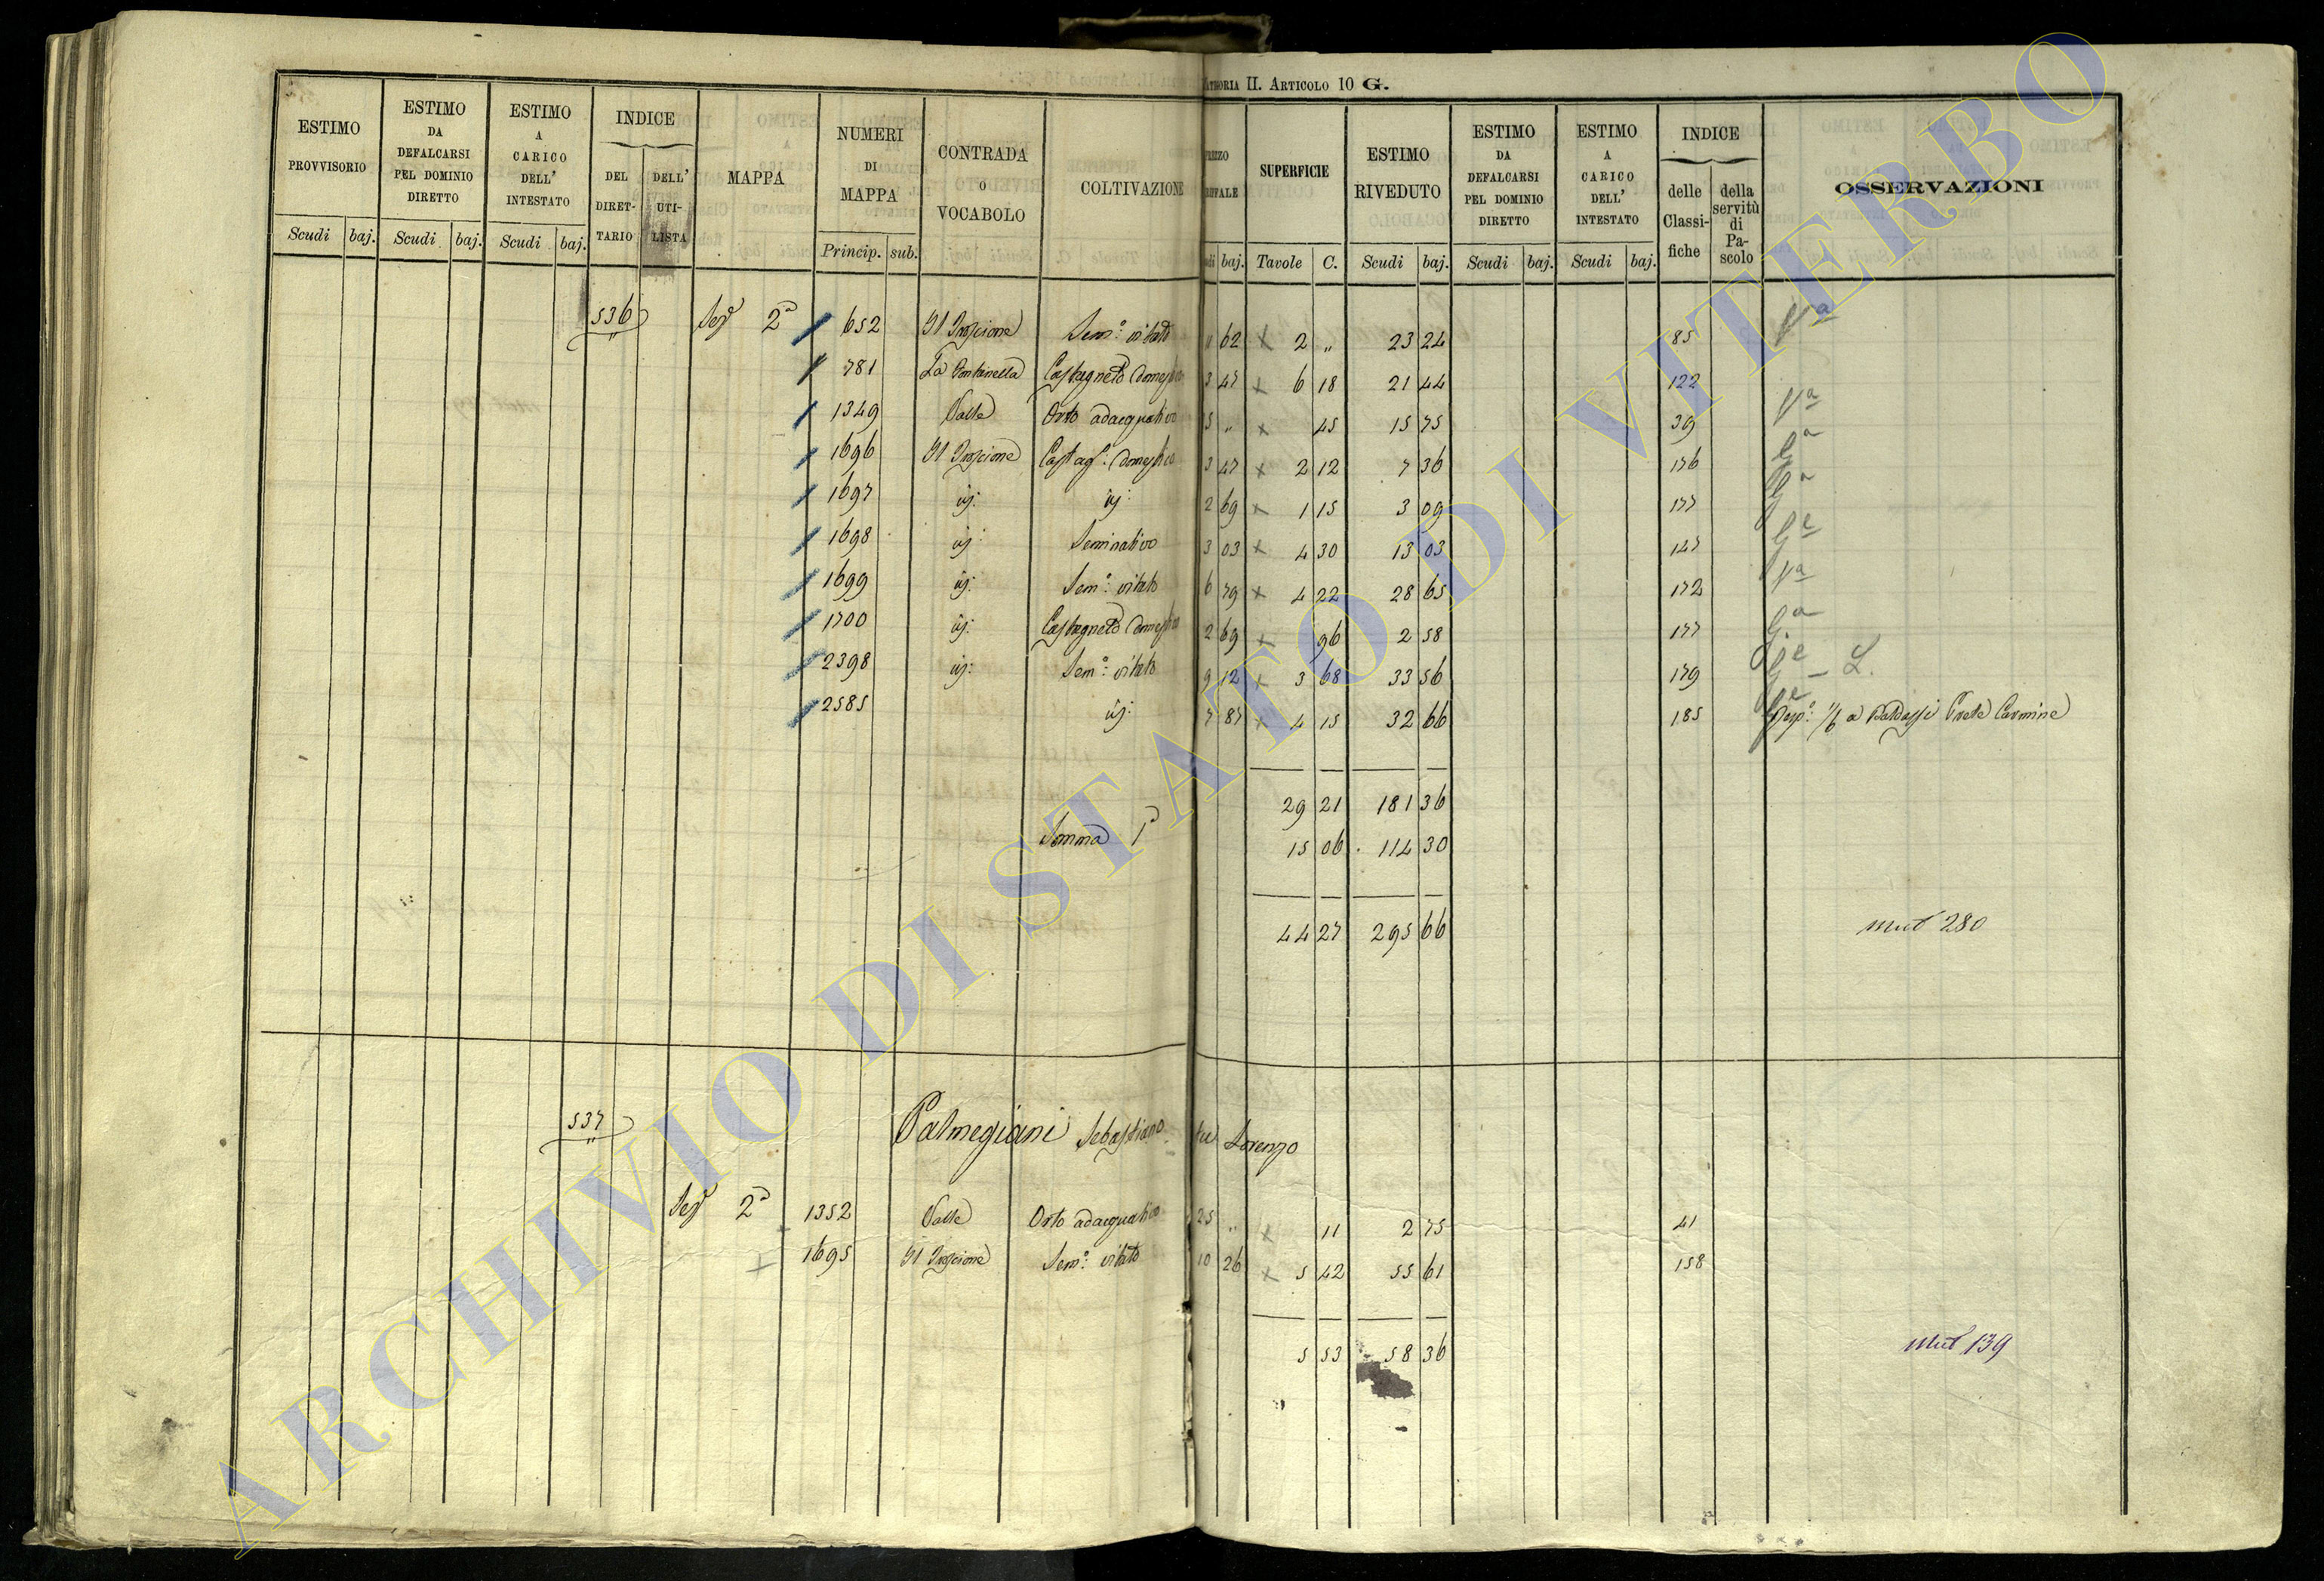 ATEGORIA II. ARTICOLO 10 G.
ESTIMO PROVVISORIO
ESTIMO DA DEFALCARSI PEL DOMINIO DIRETTO
ESTIMO A CARICO DELL' INTESTATO
INDICE
DEL DIRET-TARIO
DELL' UTI-LISTA
MAPPA
NUMERI DI MAPPA
CONTRADA O VOCABOLO
COLTIVAZIONE
SUPERFICIE
ESTIMO RIVEDUTO
ESTIMO DA DEFALCARSI PEL DOMINIO DIRETTO
ESTIMO A CARICO DELL' INTESTATO
INDICE
delle Classi-fiche
della servitù di Pa-scolo
OSSERVAZIONI
Scudi baj. Scudi baj. Scudi baj. Princip. sub. baj. Tavole C. Scudi baj. Scudi baj. Scudi baj.
536 2ª 652 Sem.º vitato 62 x 2 „ 23 24 85 Va
781 La Fontanella Castagneto Domes 3 47 x 6 18 21 44 122
1349 Valle Orto adacquativo „ x 45 15 75 39 Va
1696 Castag.º Domestico 3 47 x 2 12 7 36 176
1697 2 69 x 1 15 3 09 177
1698 Seminativo 3 03 x 4 30 13 03 147
1699 Sem.º vitato 6 79 x 4 22 28 65 172 Va
1700 Castagneto Domestico 2 69 x 96 2 58 177
2398 Sem.º vitato 9 12 x 3 68 33 56 179
2585 7 87 x 4 15 32 66 185 1/6 a Baldassi Prete Carmine
29 21 181 36
Somma 1ª 15 06 114 30
44 27 295 66 mut 280
537 Palmegiani Sebastiano Lorenzo
2ª 1352 Valle Orto adacquativo 25 „ x 11 2 75 41
x 1695 Sem.º vitato 10 26 x 5 42 55 61 158
5 53 58 36 Mut 139
ARCHIVIO DI STATO DI VITERBO